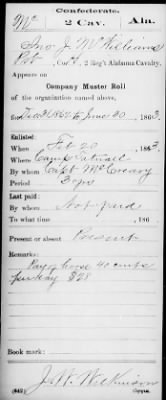 Confederate.
Mc 2 Cav. Ala.
Jno. J. McWilliams
Pvt, Co. , 2 Reg't Alabama Cavalry.
Appears on
Company Muster Roll
of the organization named above,
for Dec 31, 1862 to June 30, 1863.
Enlisted:
When Feb 20, 1863.
Where Camp
By whom Capt McCreary
Period 3 yrs
Last paid:
By whom Not paid
To what time , 186 .
Present or absent Present
Remarks:
Pay of horse 40 cents
per day $28
Book mark:
J. W. Wilkinson
(642) Copyist.